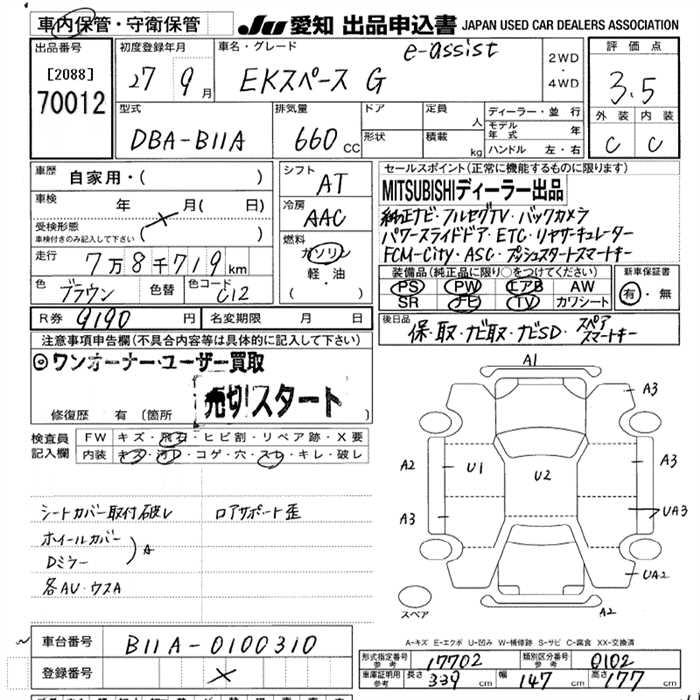 車内保管・守衛保管 JU 愛知 出品申込書 JAPAN USED CAR DEALERS ASSOCIATION
出品番号 初度登録年月 車名・グレード e-assist 2WD・4WD 評価点
[2088] 27 9月 EKスペース G 3.5
70012 型式 排気量 ドア 定員 人 ディーラー・並行 外装 内装
DBA-B11A 660cc 形状 積載 kg モデル年式 年 C C
ハンドル 左・右
車歴 自家用・( ) シフト AT セールスポイント(正常に機能するものに限ります)
車検 年 月( 日) 冷房 AAC MITSUBISHIディーラー出品
受検形態 純正ナビ・フルセグTV・バックカメラ
車検付きのみ記入して下さい 燃料 パワースライドドア・ETC・リヤサーキュレーター
走行 7万8千719km ガソリン FCM-City・ASC・プッシュスタートスマートキー
色 ブラウン 色替 色コード C12 軽・油 ( )
装備品(純正品に限り○をつけてください) 新車保証書
PS PW エアB AW 有・無
SR ナビ TV カワシート
R券 9190円 名変期限 月 日 後日品 保・取・ナビ取・ナビSD・スペアスマートキー
注意事項申告欄(不具合内容等は具体的に記入して下さい)
◎ワンオーナー・ユーザー買取
売切スタート
修復歴 有(箇所
検査員記入欄 FW キズ・飛石・ヒビ割・リペア跡・X要
内装 キズ・汚レ・コゲ・穴・スレ・キレ・破レ
シートカバー取付破レ ロアサポート歪
ホイールカバー
Dミラー )A
各AU・ウスA
A1
A3 A3
A2 U1 U2 A3
A3 UA3
UA2
スペア A2
A-キズ E-エクボ U-凹み W-補修跡 S-サビ C-腐食 XX-交換済
車台番号 B11A-0100310
登録番号 ×
形式指定番号 参考 17702 類別区分番号 参考 0102
車庫証明用 参考 長さ 339 幅 147 高さ 177 cm